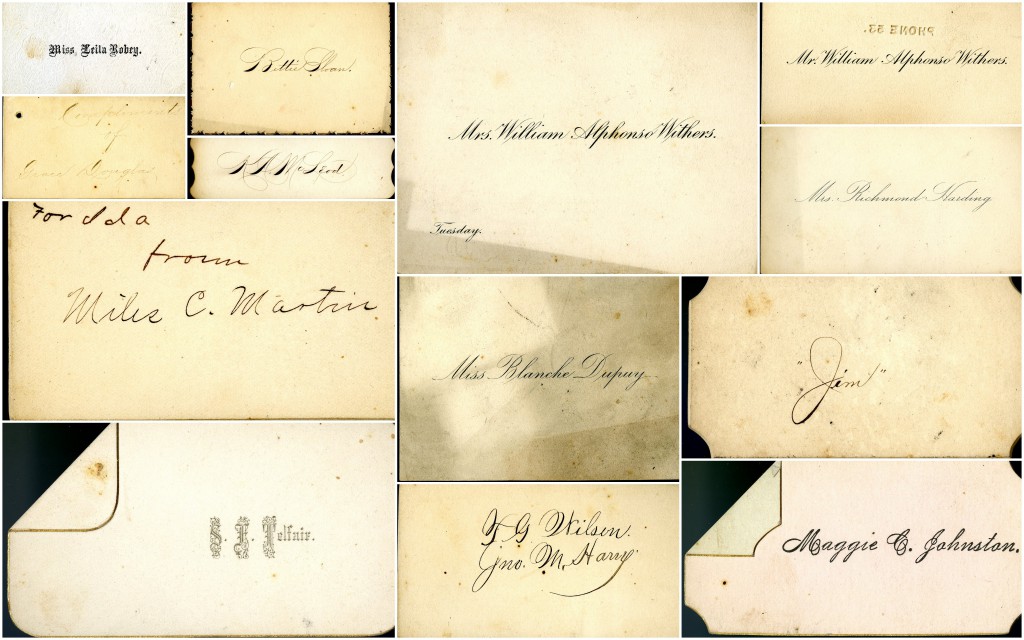 Miss Leila Robey.
Compliments
of
Grace Douglas
Bettie Sloan.
McLeod
For Ida
from
Miles C. Martin
S. J. Telfair.
Mrs. William Alphonso Withers.
Tuesday.
Miss Blanche Dupuy
G Wilson.
Jno. M. Harry
PHONE 33.
Mr. William Alphonso Withers.
Mrs. Richmond Harding
"Jim"
Maggie C. Johnston.